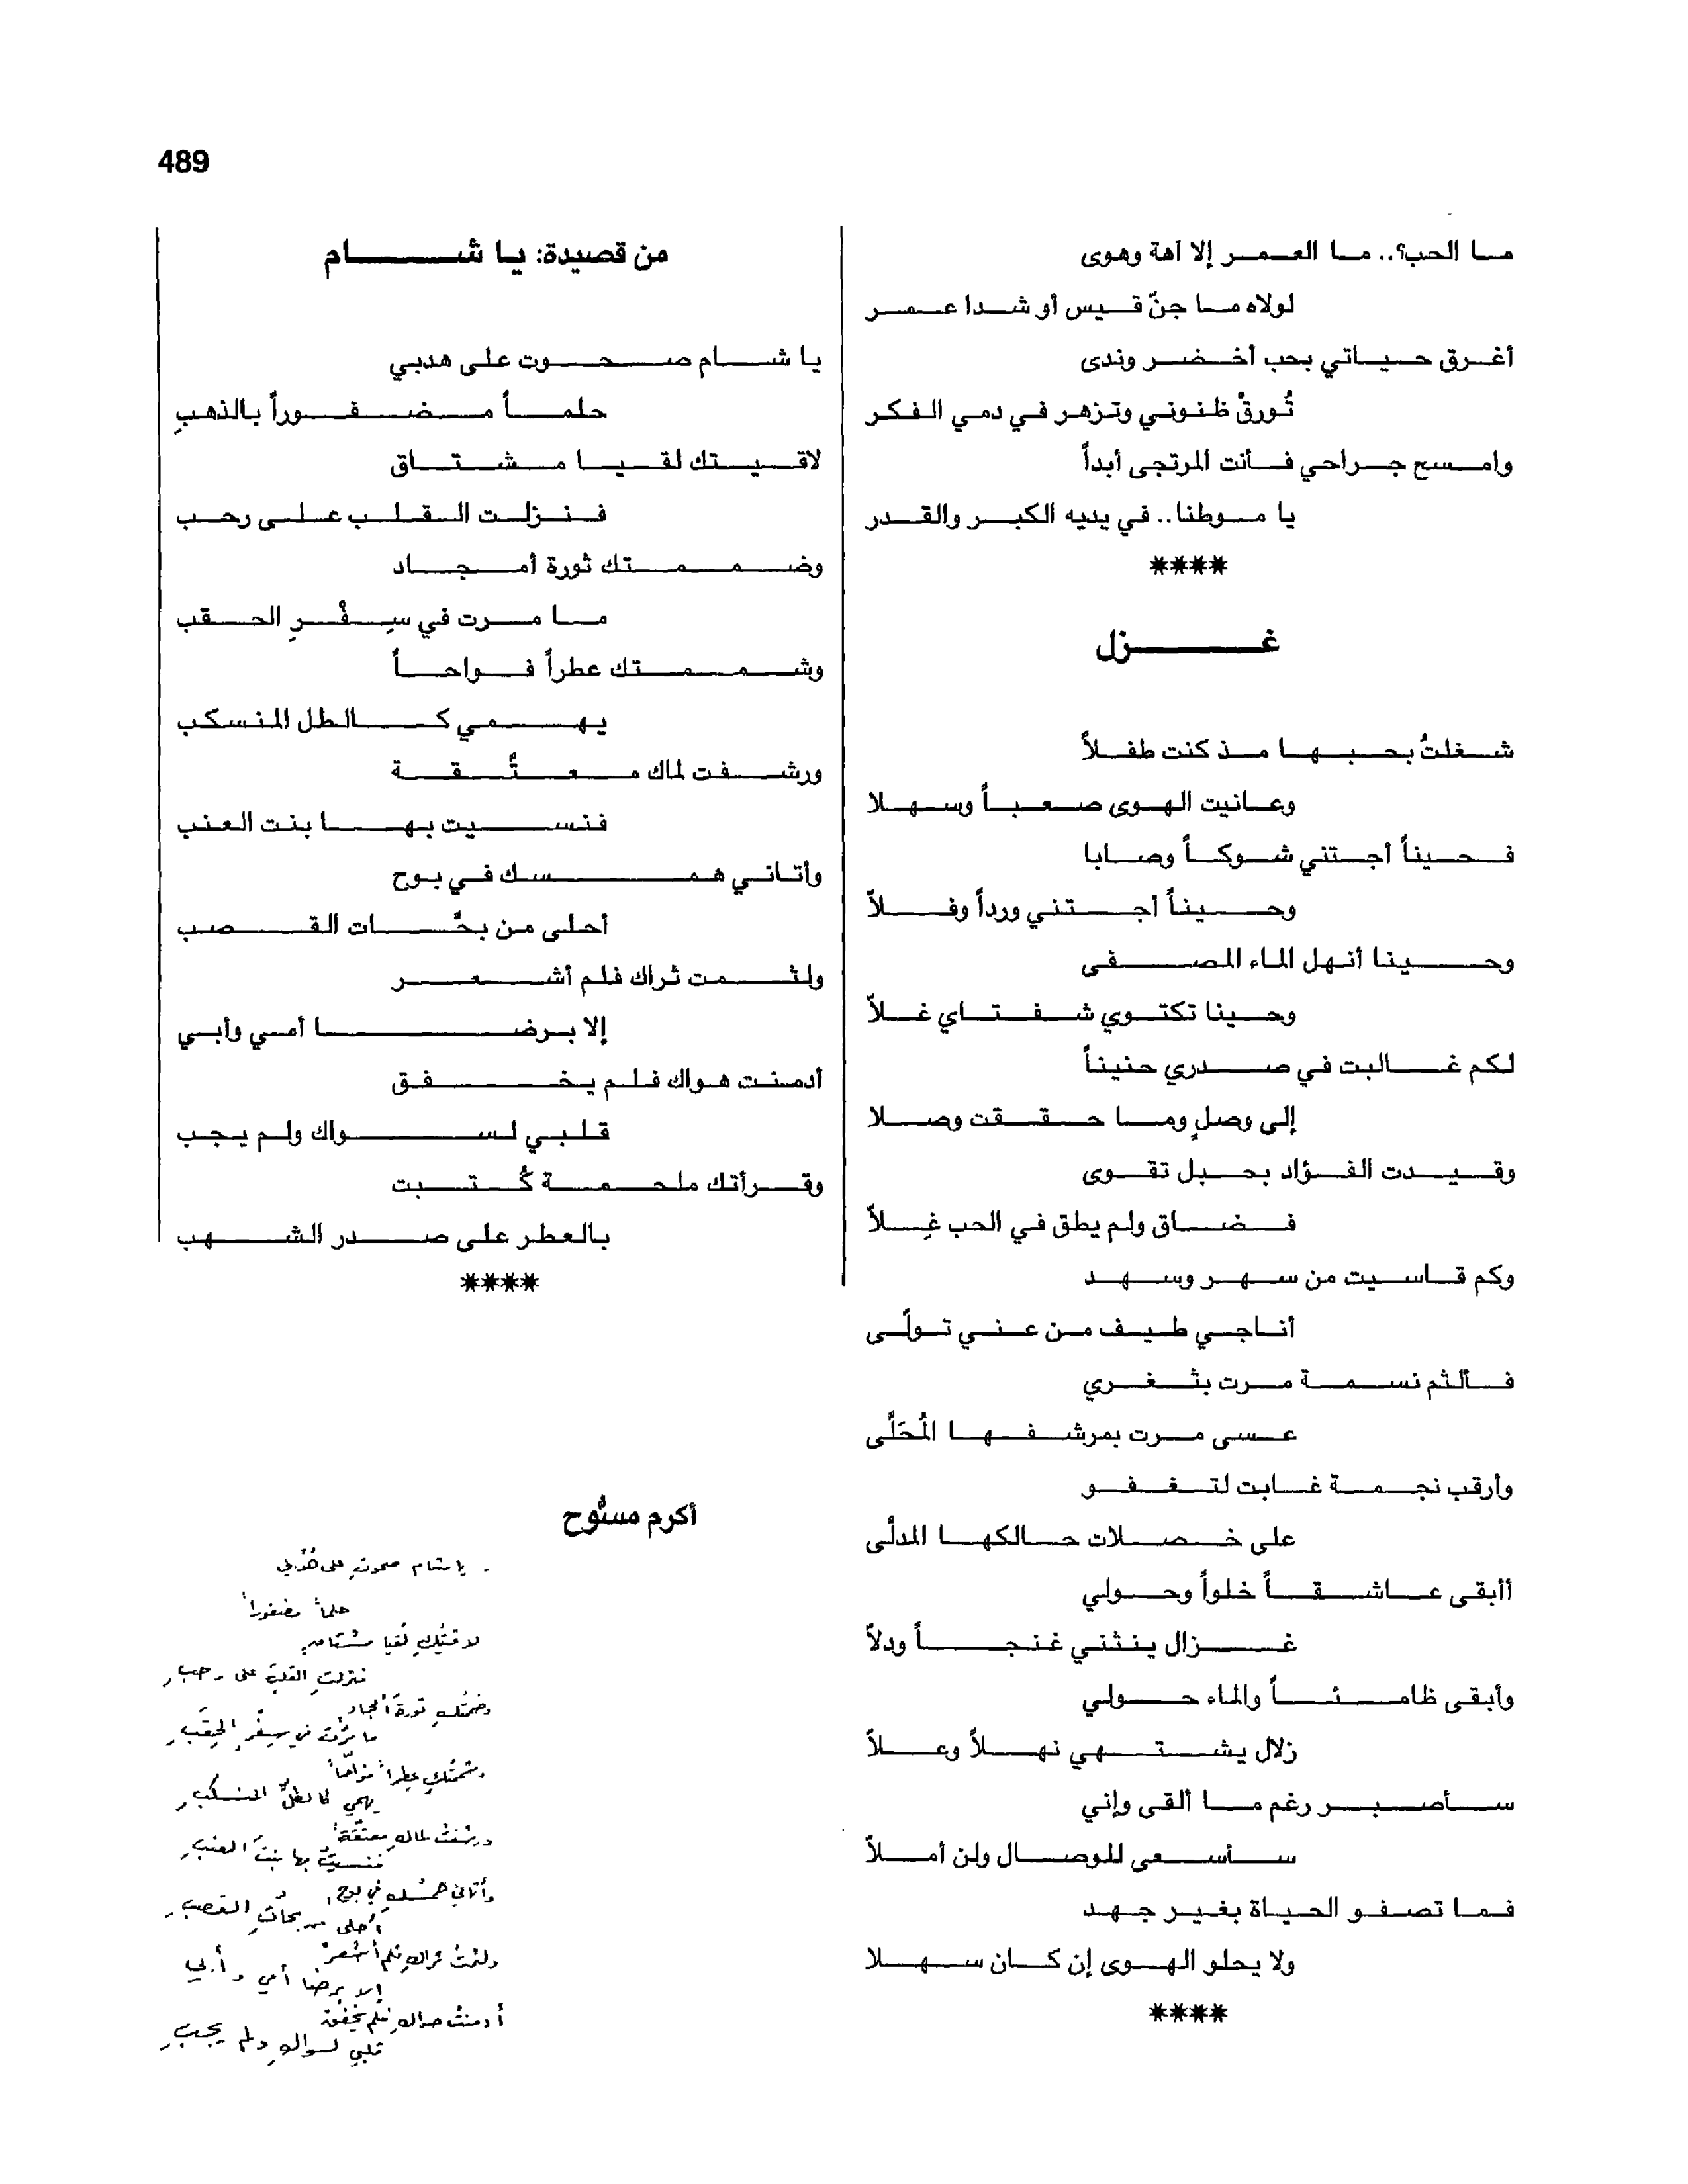 489
ما الحب؟.. ما العمر إلا آهة وهوى
لولاه ما جنّ قيس أو شدا عمر
أغرق حياتي بحب أخضر وندى
تُورقْ ظنوني وتزهر في دمي الفكر
وامسح جراحي فأنت المرتجى أبداً
يا موطنا.. في يديه الكبر والقدر
****
غزل
شغلتُ بحبها مذ كنت طفلاً
وعانيت الهوى صعباً وسهلا
فحيناً أجتني شوكاً وصابا
وحيناً أجتني ورداً وفلاّ
وحينا أنهل الماء المصفى
وحينا تكتوي شفتاي غلاّ
لكم غالبت في صدري حنيناً
إلى وصلٍ وما حققت وصلا
وقيدت الفؤاد بحبل تقوى
فضاق ولم يطق في الحب غِلاّ
وكم قاسيت من سهر وسهد
أناجي طيف من عني تولّى
فألثم نسمة مرت بثغري
عسى مرت بمرشفها المُحَلَّى
وأرقب نجمة غابت لتغفو
على خصلات حالكها المدلَّى
أأبقى عاشقاً خلواً وحولي
غزال ينثني غنجاً ودلاّ
وأبقى ظامئاً والماء حولي
زلال يشتهي نهلاً وعلاّ
سأصبر رغم ما ألقى وإني
سأسعى للوصال ولن أملاّ
فما تصفو الحياة بغير جهد
ولا يحلو الهوى إن كان سهلا
****
من قصيدة: يا شام
يا شام صحوت على هدبي
حلماً مضفوراً بالذهبِ
لاقيتك لقيا مشتاق
فنزلت القلب على رحب
وضممتك ثورة أمجاد
ما مرت في سِفْرِ الحقب
وشممتك عطراً فواحاً
يهمي كالطل المنسكب
ورشفت لماك معتُقة
فنسيت بها بنت العنب
وأتاني همسك في بوح
أحلى من بحَّات القصب
ولثمت ثراك فلم أشعر
إلا برضا أمي وأبي
أدمنت هواك فلم يخفق
قلبي لسواك ولم يجب
وقرأتك ملحمة كُتبت
بالعطر على صدر الشهب
****
أكرم مسوُّح
يا شام صحوتِ على هُدُبي
حلماً مضفوراً
لاقيتُكِ لُقيا مشتاقٍ
فنزلتِ القلبَ على رحبِ
وضممتُكِ ثورةَ أمجادٍ
ما مرَّت في سِفْرِ الحِقَبِ
وشممتُكِ عطراً فوّاحاً
يهمي كالطلِّ المنسكبِ
ورشفتُ لماكِ معتّقةً
فنسيتُ بها بنتَ العنبِ
وأتاني همسُكِ في بوحٍ
أحلى من بحّاتِ القصبِ
ولثمتُ ثراكِ فلم أشعرْ
إلا برضا أمي وأبي
أدمنتُ هواكِ فلم يخفقْ
قلبي لسواكِ ولم يجبِ